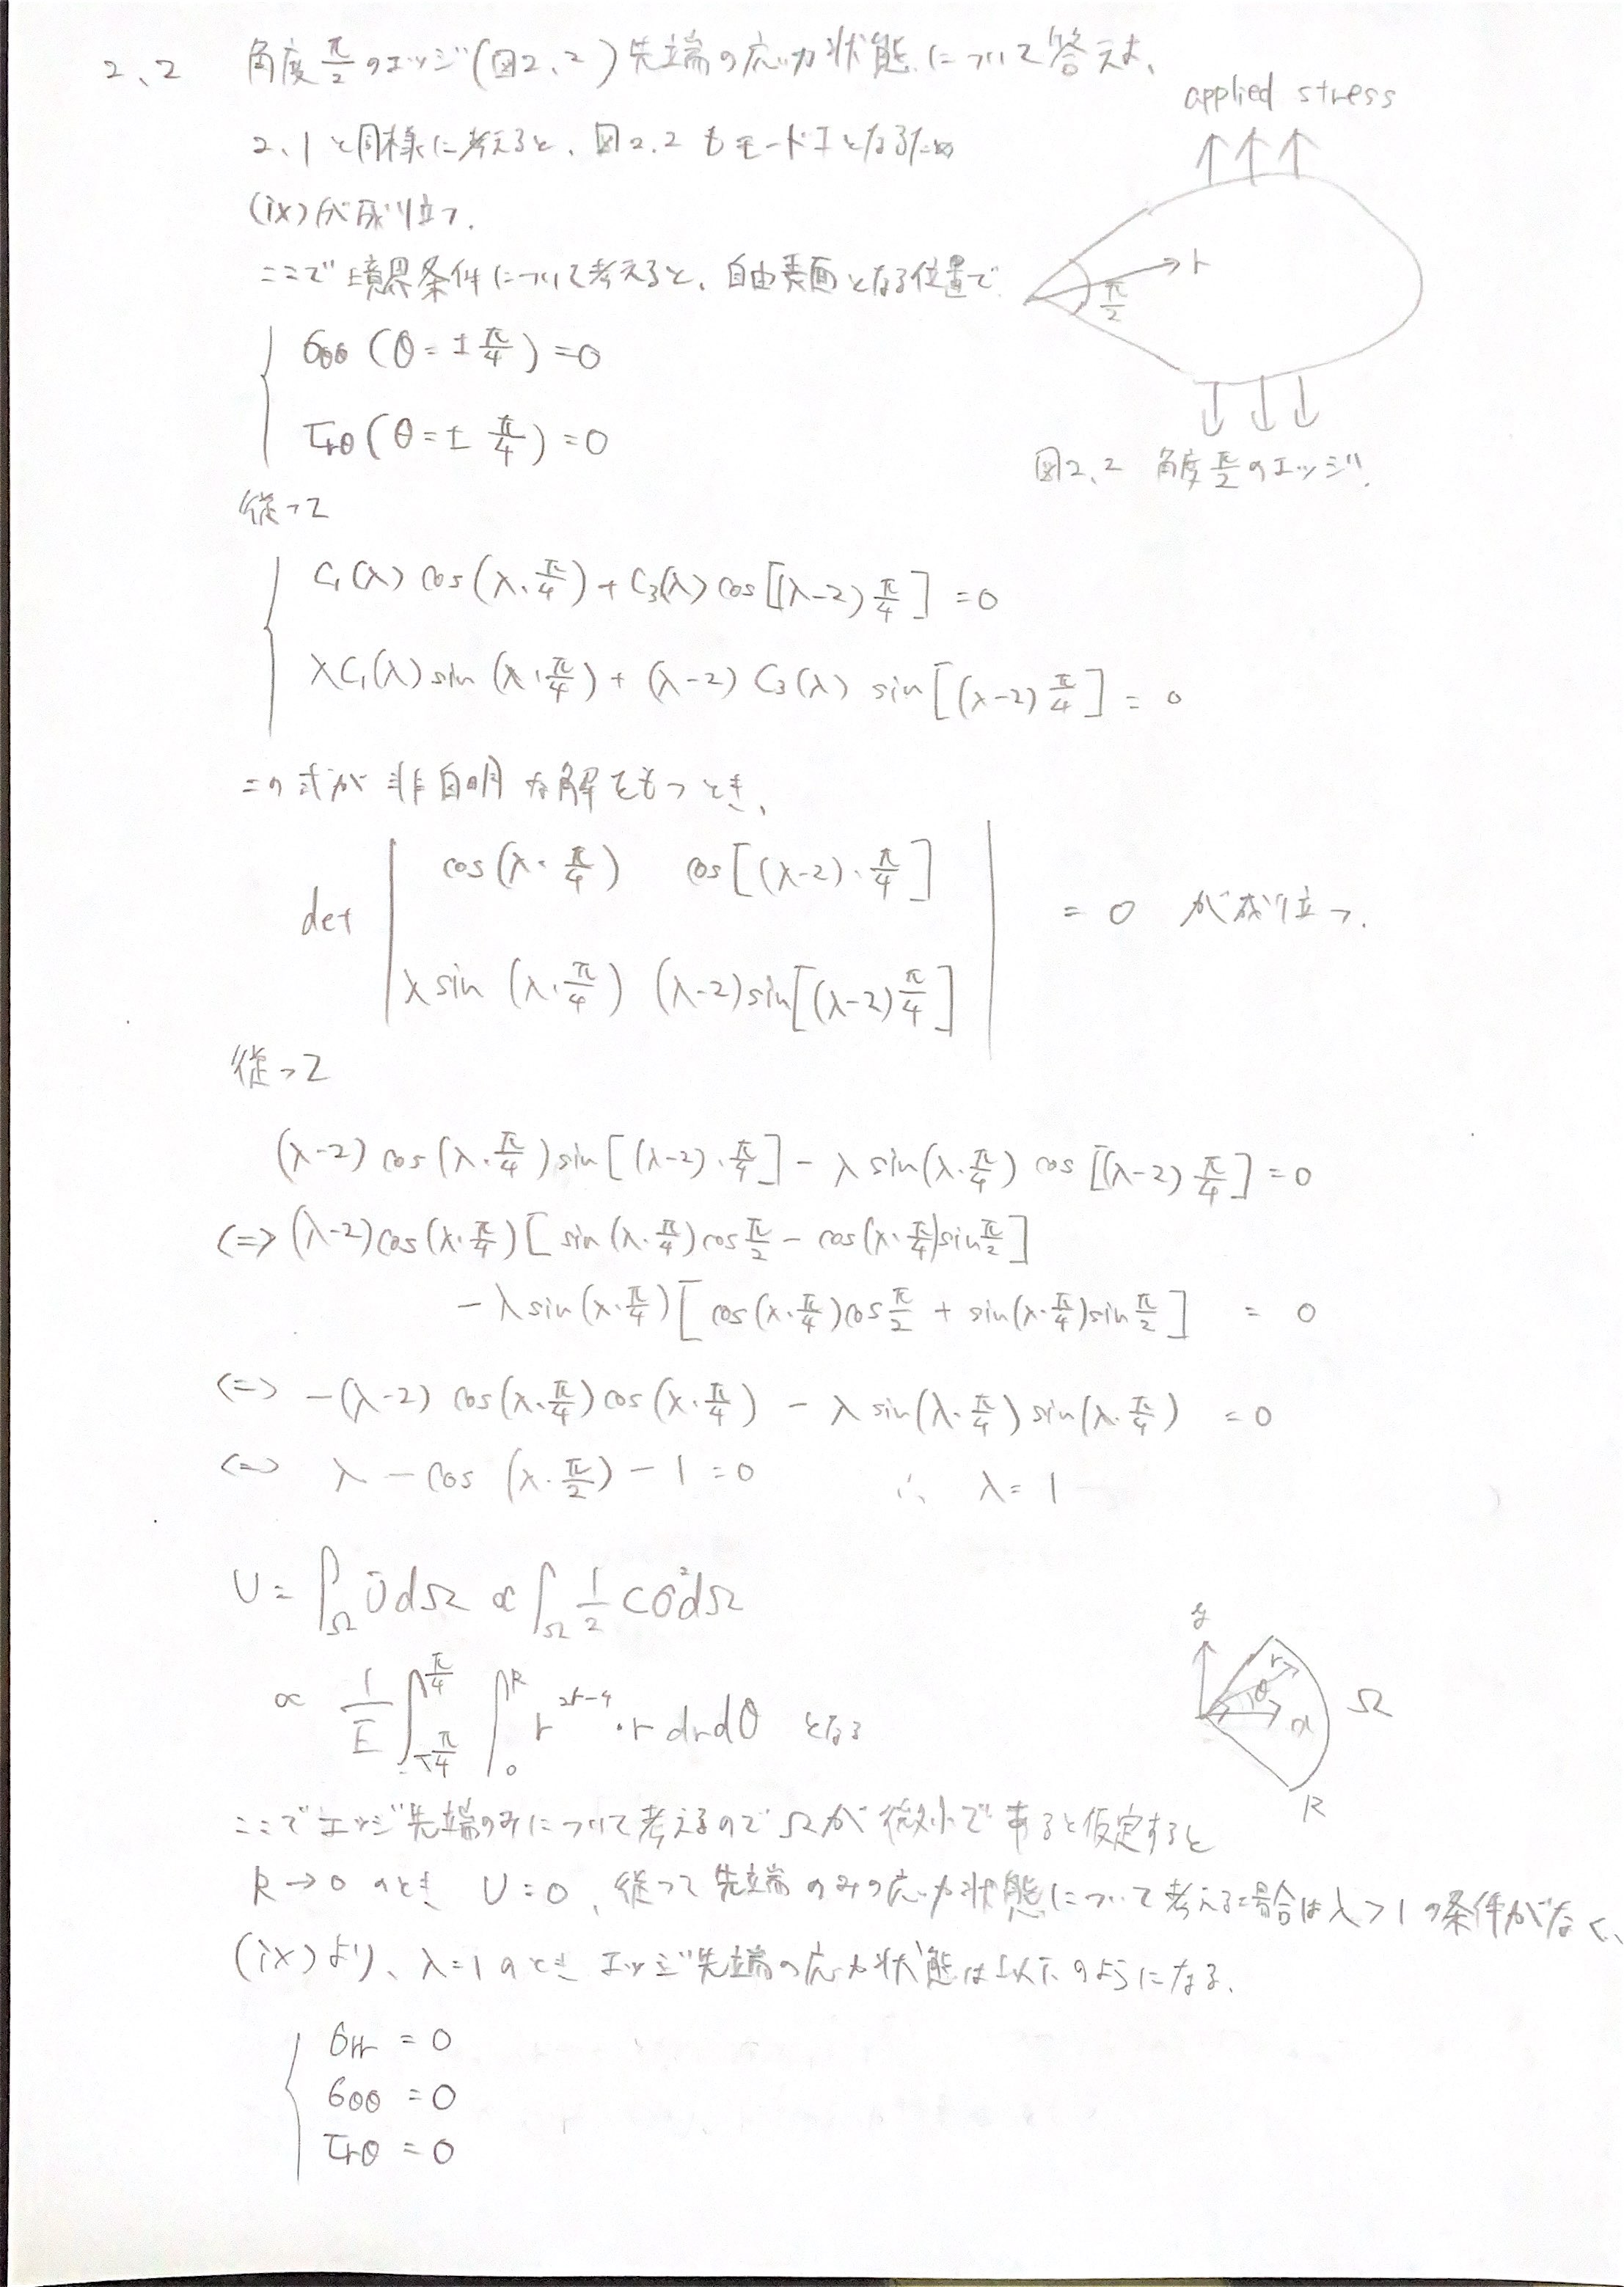 2.2 角度 π/2 のエッジ(図2.2)先端の応力状態について答えよ、
applied stress
2.1と同様に考えると、図2.2もモードIとなるため
(ix)が成り立つ.
ここで境界条件について考えると、自由表面となる位置で
r
π/2
σθθ (θ = ± π/4) = 0
τrθ (θ = ± π/4) = 0
図2.2 角度 π/2 のエッジ
従って
C₁(λ) cos(λ・π/4) + C₃(λ) cos[(λ-2) π/4] = 0
λC₁(λ) sin (λ・π/4) + (λ-2) C₃(λ) sin[(λ-2) π/4] = 0
この式が非自明な解をもつとき、
cos(λ・π/4) cos[(λ-2)・π/4]
det = 0 が成り立つ.
λ sin (λ・π/4) (λ-2) sin[(λ-2) π/4]
従って
(λ-2) cos(λ・π/4) sin[(λ-2)・π/4] - λ sin(λ・π/4) cos[(λ-2) π/4] = 0
⇔ (λ-2) cos(λ・π/4) [sin(λ・π/4) cos π/2 - cos(λ・π/4) sin π/2]
- λ sin(λ・π/4) [cos(λ・π/4) cos π/2 + sin(λ・π/4) sin π/2] = 0
⇔ -(λ-2) cos(λ・π/4) cos(λ・π/4) - λ sin(λ・π/4) sin(λ・π/4) = 0
⇔ λ - cos (λ・π/2) - 1 = 0 ∴ λ = 1
U = ∫Ω Ū dΩ ∝ ∫Ω 1/2 Cσ² dΩ
y
r
θ
x
Ω
R
∝ 1/E ∫_{-π/4}^{π/4} ∫_0^R r^{2λ-4}・r dr dθ となる
ここでエッジ先端のみについて考えるのでΩが微小であると仮定すると
R→0 のとき U=0、従って先端のみの応力状態について考える場合は λ>1 の条件がなく、
(ix)より、λ=1のときエッジ先端の応力状態は以下のようになる.
σrr = 0
σθθ = 0
τrθ = 0